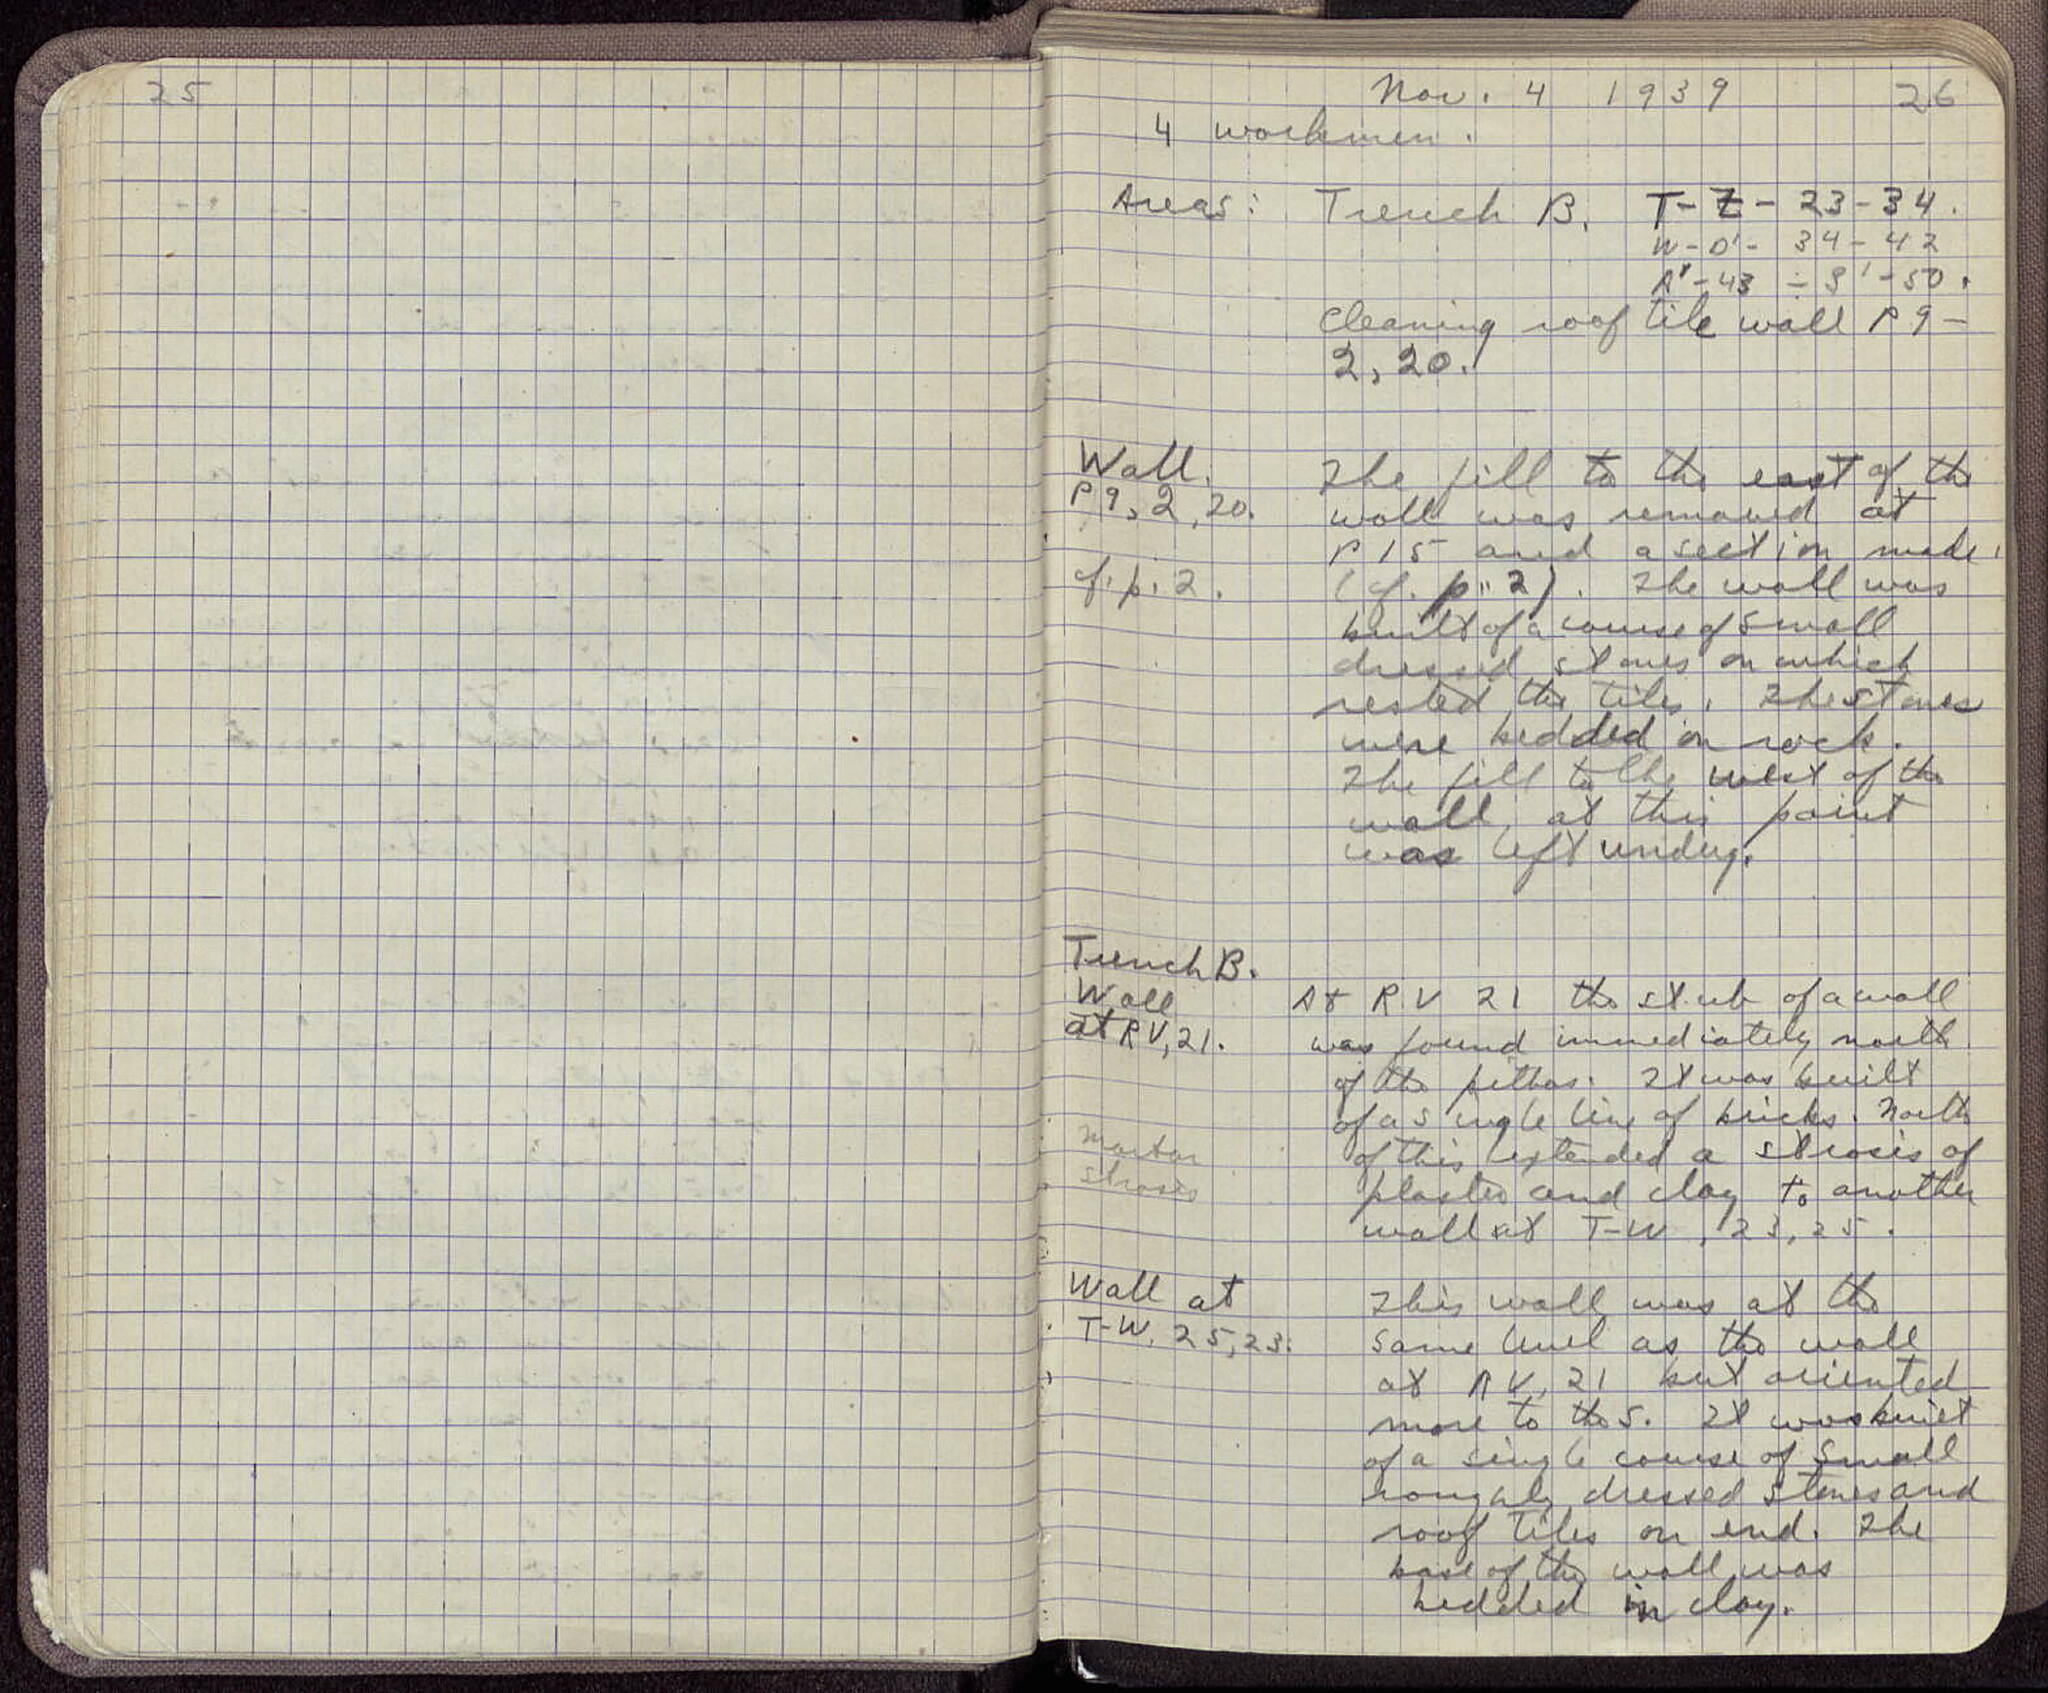 25
Nov. 4 1939 26
4 workmen.
Areas: Trench B. T-Z-23-34.
W-D'- 34-42
A'-43 - -50.
Cleaning roof tile wall P 9-
2, 20.
Wall.
P 9, 2, 20.
cf. p. 2.
The fill to the east of the
wall was removed at
P 15 and a section made.
(cf. p. 2). The wall was
built of a course of small
dressed stones on which
rested the tiles. The stones
were bedded in rock.
The fill to the west of the
wall, at this point
was left undug.
Trench B.
Wall
at RV, 21.
At RV 21 the stub of a wall
was found immediately north
of the pithos. It was built
of a single line of bricks. North
of this extended a strosis of
plaster and clay to another
wall at T-W, 23, 25.
mortar
strosis
Wall at
T-W. 25, 23:
This wall was at the
same level as the wall
at RV, 21 but oriented
more to the S. It was built
of a single course of small
roughly dressed stones and
roof tiles on end. The
base of the wall was
bedded in clay.